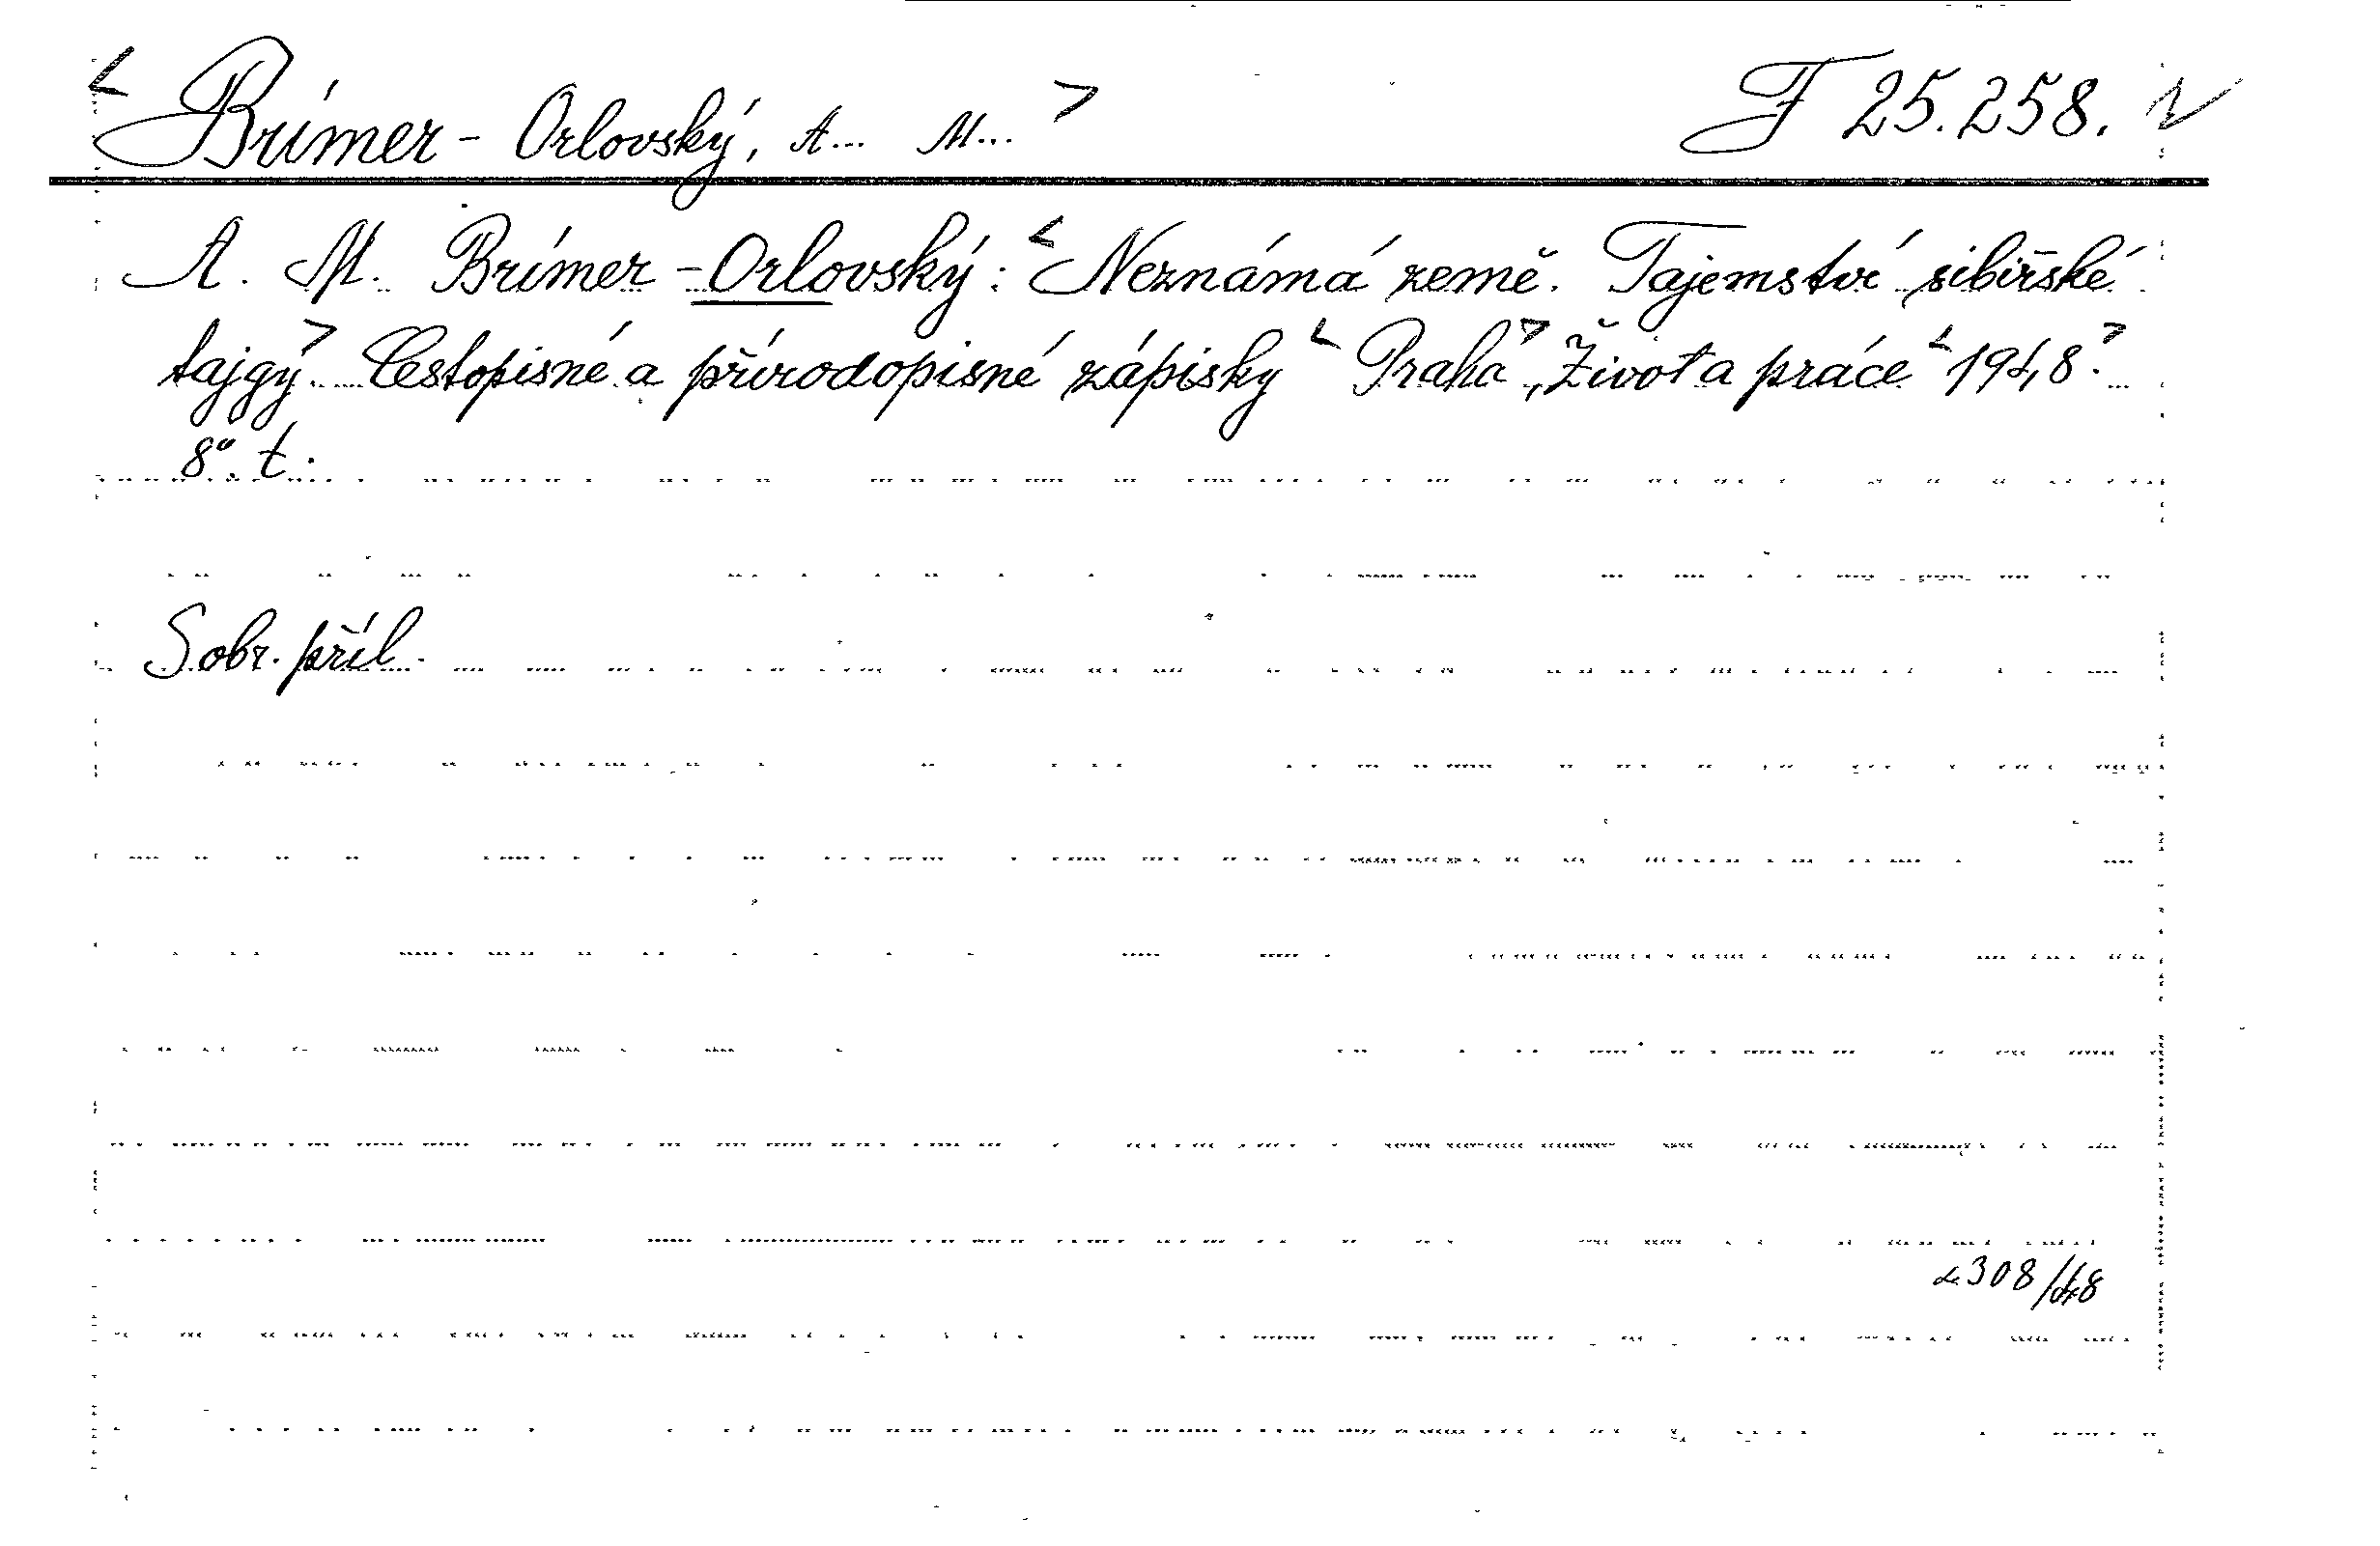 < Brímer - Orlovský, A... M... > F 25.258.
A. M. Brímer - Orlovský: <Neznámá země. Tajemství sibiřské
tajgy>. Cestopisné a přírodopisné zápisky <Praha> „Život a práce“ <1948>.
8°. t.
S obr. příl.
308/48